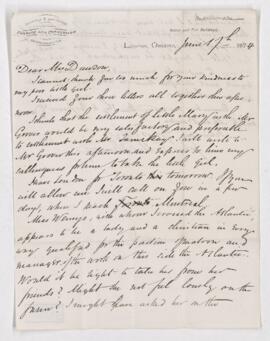 London, Ontario, June 17th 1874
Dear Mrs Dawson,
I cannot thank you too much for your kindness to
my poor sick girl.
I received your three letters all together this after-
noon. I think that the settlement of little Mary with Mr
Groves would be very satisfactory and preferable
to settlement with Mr. I will write to
Mr Groves this afternoon and express to him my
willingness to take the little girl.
I leave London for Toronto tomorrow. If you
will allow me I will call on you in a few
days, when I reach Montreal.
Miss, with whom I crossed the Atlantic,
appears to be a lady, and a christian in every
way qualified for the position of matron and
manager of the work on this side the Atlantic.
Would it be right to take her from her
friends? Might she not feel lonely on the
farm? I might have asked her on the